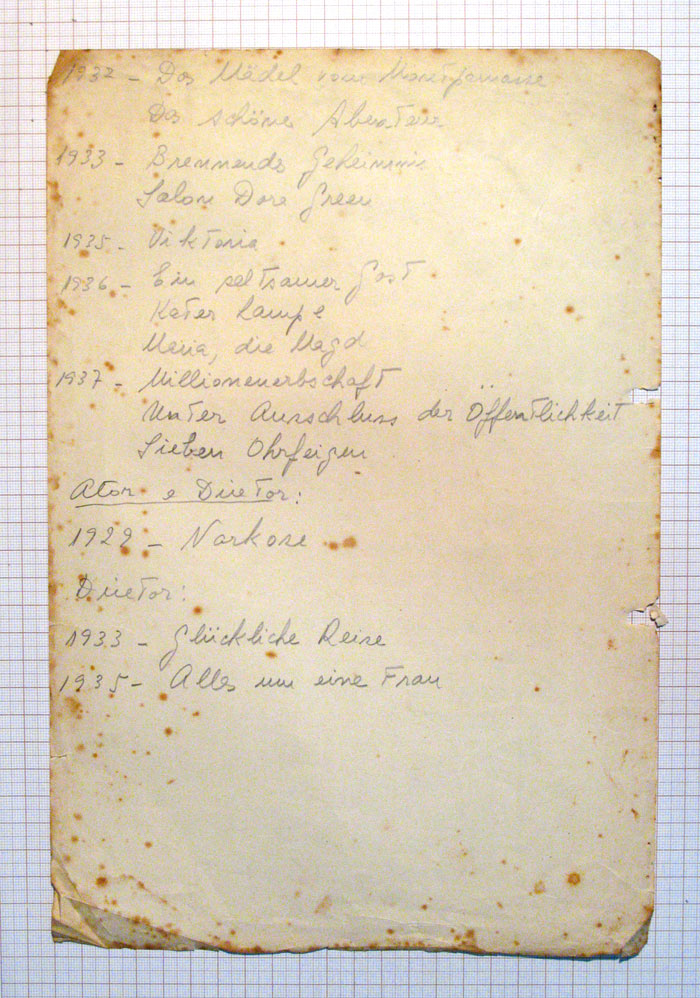 1932 - Das Mädel vom Montparnasse
Das schöne Abenteuer
1933 - Brennendes Geheimnis
Salon Dora Green
1935 - Viktoria
1936 - Ein seltsamer Gast
Kater Lampe
Maria, die Magd
1937 - Millionenerbschaft
Unter Ausschluss der Öffentlichkeit
Sieben Ohrfeigen
Ator e Diretor:
1929 - Narkose
Diretor:
1933 - Glückliche Reise
1935 - Alles um eine Frau